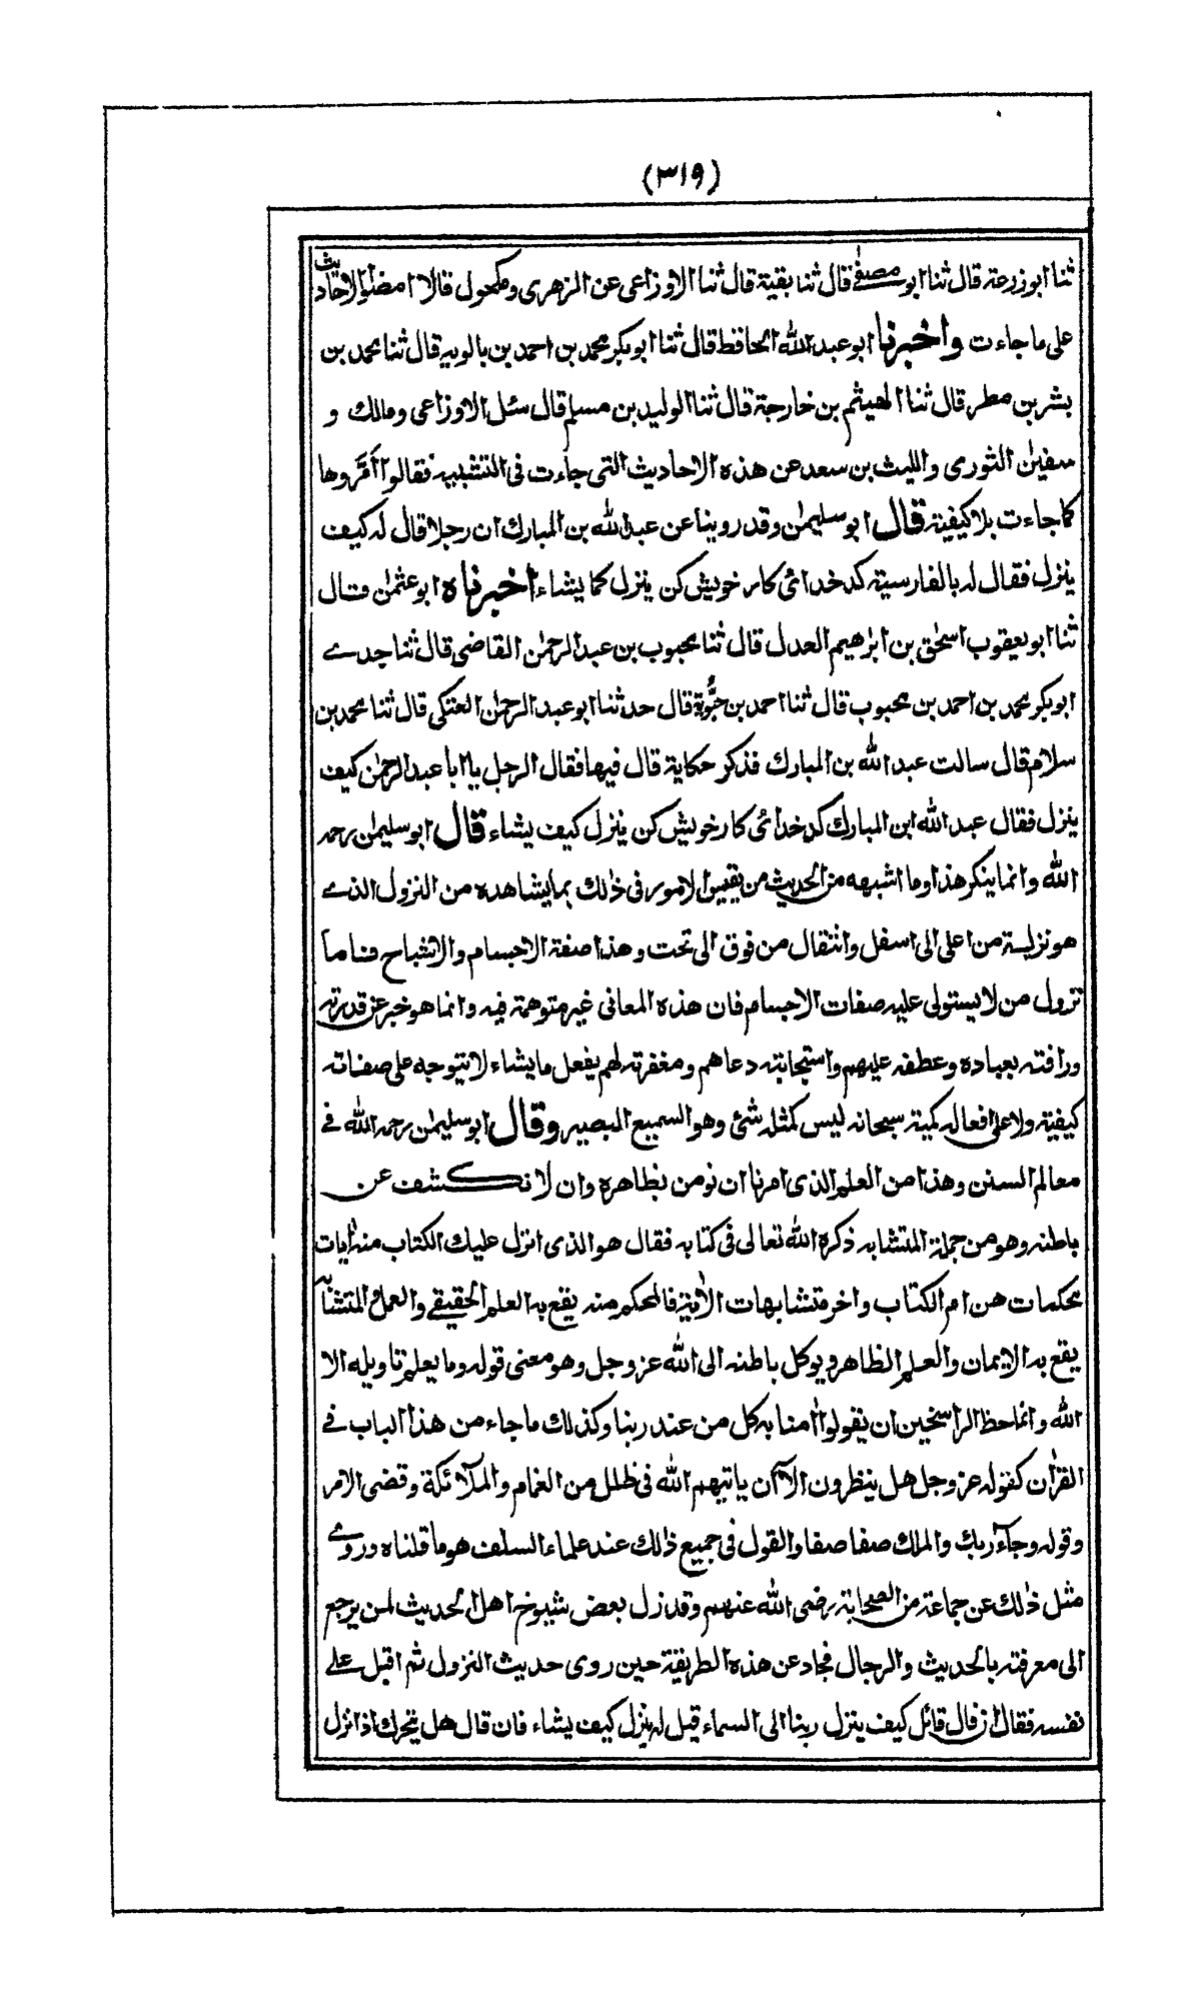 (٣١٩)
ثنا ابو زرعة قال ثنا ابو مصفى قال ثنا بقية قال ثنا الاوزاعى عن الزهرى ومكحول قالا امضوا الاحاديث
على ما جاءت واخبرنا ابو عبد الله الحافظ قال ثنا ابو بكر محمد بن احمد بن بالويه قال ثنا محمد بن
بشر بن مطر قال ثنا الهيثم بن خارجة قال ثنا الوليد بن مسلم قال سئل الاوزاعى ومالك و
سفيٰن الثورى والليث بن سعد عن هذه الاحاديث التى جاءت فى التشبيه فقالوا أمرّوها
كما جاءت بلا كيفية قال ابو سليمٰن وقد روينا عن عبد الله بن المبارك ان رجلا قال له كيف
ينزل فقال له بالفارسية كد خدائ كار خويش كن ينزل كما يشاء اخبرناه ابو عثمٰن قال
ثنا ابو يعقوب اسحٰق بن ابرٰهيم العدل قال ثنا محبوب بن عبد الرحمٰن القاضى قال ثنا جدے
ابو بكر محمد بن احمد بن محبوب قال ثنا احمد بن حيويه قال حدثنا ابو عبد الرحمٰن العتكى قال ثنا محمد بن
سلام قال سالت عبد الله بن المبارك فذكر حكاية قال فيها فقال الرجل يا ابا عبد الرحمٰن كيف
ينزل فقال عبد الله ابن المبارك كد خدائ كار خويش كن ينزل كيف يشاء قال ابو سليمٰن رحمه
الله وانما ينكر هذا وما اشبهه من الحديث من يقيس الامور فى ذٰلك بما يشاهده من النزول الذے
هو نزلة من اعلى الى اسفل وانتقال من فوق الى تحت وهذا صفة الاجسام والاشباح فاما
نزول من لا يستولى عليه صفات الاجسام فان هذه المعانى غير متوهمة فيه وانما هو خبر عن قدرته
ورافته بعباده وعطفه عليهم واستجابته دعاهم ومغفرته لهم يفعل ما يشاء لا يتوجه على صفاته
كيفية ولا على افعاله كمية سبحانه ليس كمثله شئ وهو السميع البصير وقال ابو سليمٰن رحمه الله فے
معالم السنن وهذا من العلم الذى امرنا ان نومن بظاهره وان لا نكشف عن
باطنه وهو من جملة المتشابه ذكره الله تعالى فى كتابه فقال هو الذى انزل عليك الكتاب منه اٰيات
محكمات هن ام الكتاب واخر متشابهات الاٰية فالمحكم منه يقع به العلم الحقيقے والعمل والمتشابه
يقع به الايمان والعلم الظاهر ويوكل باطنه الى الله عز وجل وهو معنى قوله وما يعلم تاويله الا
الله وانما حظ الراسخين ان يقولوا اٰمنا به كل من عند ربنا وكذلك ما جاء من هذا الباب فے
القراٰن كقوله عز وجل هل ينظرون الا اٰن ياتيهم الله فى ظلل من الغمام والملآئكة وقضى الامر
وقوله وجآء ربك والملك صفا صفا والقول فى جميع ذٰلك عند علماء السلف هو ما قلناه وروے
مثل ذٰلك عن جماعة من الصحابة رضى الله عنهم وقد زل بعض شيوخ اهل الحديث لمن يرجع
الى معرفته بالحديث والرجال فحاد عن هذه الطريقة حين روى حديث النزول ثم اقبل علے
نفسه فقال ان قال قائل كيف ينزل ربنا الى السماء قيل له ينزل كيف يشاء فان قال هل يتحرك اذا نزل